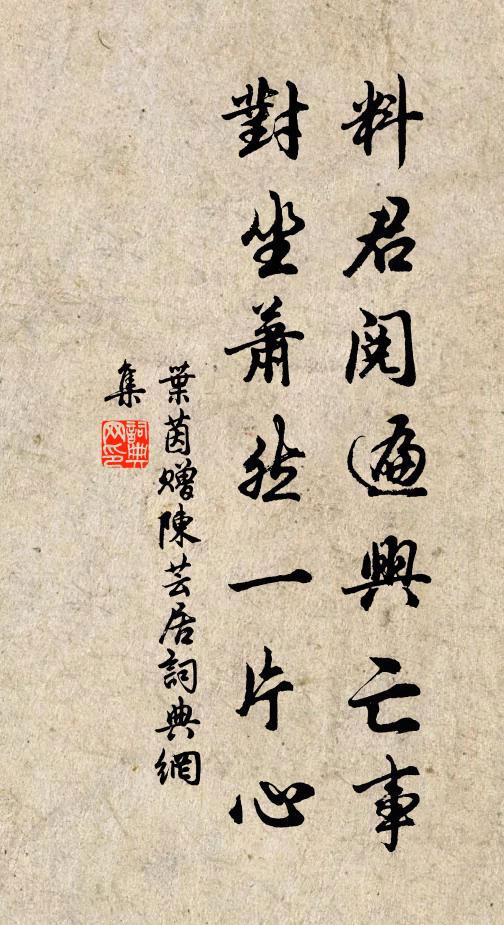 料君閱遍興亡事
對坐蕭然一片心
葉茵贈陳芸居詞典網
集
詞典
网印